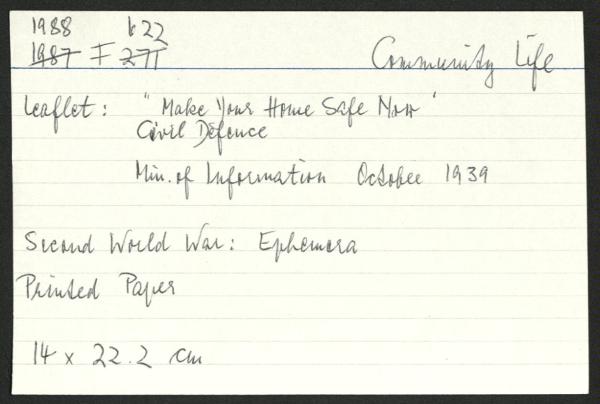 1988 622
1987 F 271
Community Life
Leaflet: "Make Your Home Safe Now"
Civil Defence
Min. of Information October 1939
Second World War: Ephemera
Printed Paper
14 x 22.2 cm